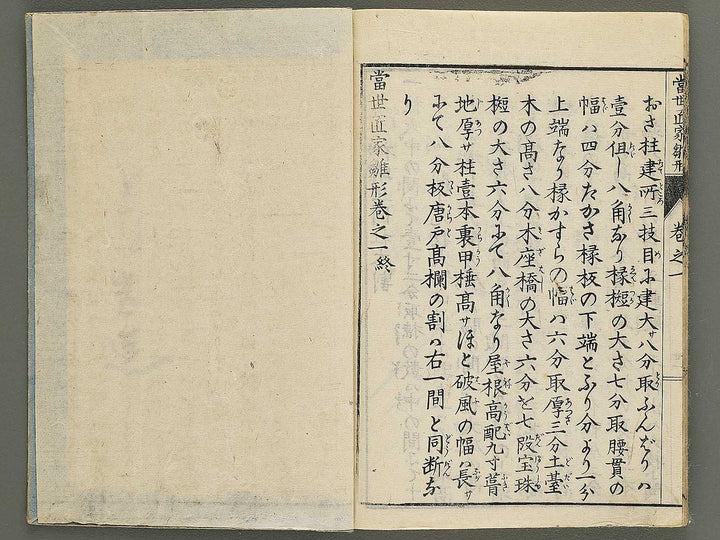 當世匠家雛形 卷之一
おさ柱建所三枝目に建大サ八分取ふんばりハ
壹分但し八角なり椽𣖔の大さ七分取腰貫の
幅ハ四分たかさ椽板の下端とふり分より一分
上端なり椽かすらの幅ハ六分取厚三分土䑓
木の髙さ八分木座橋の大さ六分を七段宝珠
𣖔の大さ六分にて八角なり屋根高配九寸葺
地厚サ柱壹本裏甲棰髙サほと破風の幅ハ長サ
にて八分板唐戸髙欄の割ハ右一間と同断な
り
當世匠家雛形卷之一終